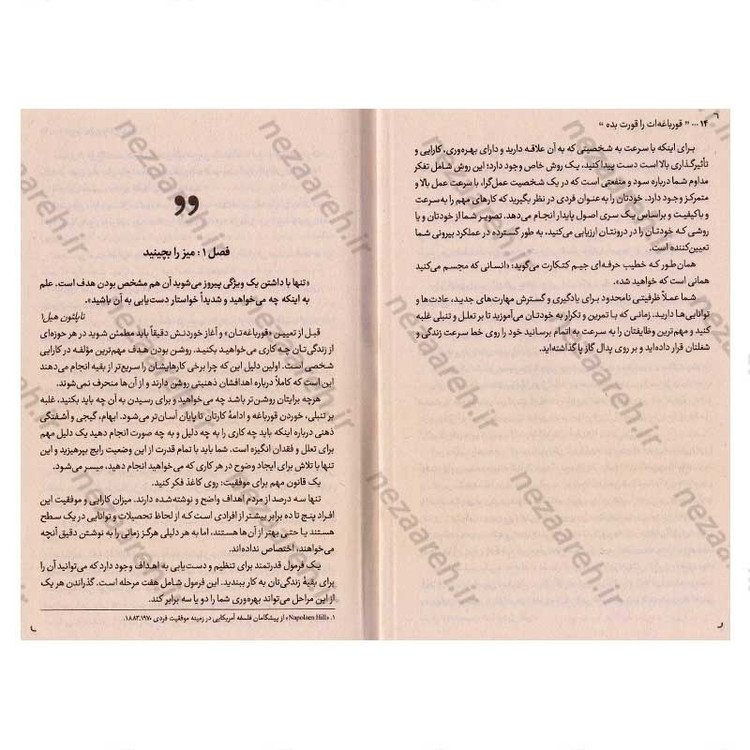 ۱۴ ... « قورباغه‌ات را قورت بده »
برای اینکه با سرعت به شخصیتی که به آن علاقه دارید و دارای بهره‌وری، کارایی و
تأثیرگذاری بالا است دست پیدا کنید، یک روش خاص وجود دارد؛ این روش شامل تفکر
مداوم شما درباره سود و منفعتی است که در یک شخصیت عمل‌گرا، با سرعت عمل بالا و
متمرکز وجود دارد. خودتان را به عنوان فردی در نظر بگیرید که کارهای مهم را به‌سرعت
و باکیفیت و براساس یک سری اصول پایدار انجام می‌دهد. تصویر شما از خودتان و با
روشی که خودتان را در درونتان ارزیابی می‌کنید، به طور گسترده در عملکرد بیرونی شما
تعیین‌کننده است.
همان‌طور که خطیب حرفه‌ای جیم کتکارت می‌گوید: «انسانی که مجسم می‌کنید
همانی است که خواهید شد».
شما عملاً ظرفیتی نامحدود برای یادگیری و گسترش مهارت‌های جدید، عادت‌ها و
توانایی‌ها دارید. زمانی که با تمرین و تکرار به خودتان می‌آموزید تا بر تعلل و تنبلی غلبه
کنید و مهم‌ترین وظایفتان را به سرعت به اتمام برسانید خود را روی خط سرعت زندگی و
شغلتان قرار داده‌اید و بر روی پدال گاز پا گذاشته‌اید.
فصل ۱: میز را بچینید
«تنها با داشتن یک ویژگی پیروز می‌شوید آن هم مشخص بودن هدف است. علم
به اینکه چه می‌خواهید و شدیداً خواستار دست‌یابی به آن باشید».
ناپلئون هیل۱
قبل از تعیین «قورباغه‌تان» و آغاز خوردنش دقیقاً باید مطمئن شوید در هر حوزه‌ای
از زندگی‌تان چه کاری می‌خواهید بکنید. روشن بودن هدف مهم‌ترین مؤلفه در کارایی
شخصی است. اولین دلیل این که چرا برخی کارهایشان را سریع‌تر از بقیه انجام می‌دهند
این است که کاملاً درباره اهدافشان ذهنیتی روشن دارند و از آن‌ها منحرف نمی‌شوند.
هرچه برایتان روشن‌تر باشد چه می‌خواهید و برای رسیدن به آن چه باید بکنید، غلبه
بر تنبلی، خوردن قورباغه و ادامهٔ کارتان تا پایان آسان‌تر می‌شود. ابهام، گیجی و آشفتگی
ذهنی درباره اینکه باید چه کاری را به چه دلیل و به چه صورت انجام دهید یک دلیل مهم
برای تعلل و فقدان انگیزه است. شما باید با تمام قدرت از این وضعیت رایج بپرهیزید و این
تنها با تلاش برای ایجاد وضوح در هر کاری که می‌خواهید انجام دهید، میسر می‌شود.
یک قانون مهم برای موفقیت: روی کاغذ فکر کنید.
تنها سه درصد از مردم اهداف واضح و نوشته‌شده دارند. میزان کارایی و موفقیت این
افراد پنج تا ده برابر بیشتر از افرادی است که از لحاظ تحصیلات و توانایی در یک سطح
هستند یا حتی بهتر از آن‌ها هستند، اما به هر دلیلی هرگز زمانی را به نوشتن دقیق آنچه
می‌خواهند، اختصاص نداده‌اند.
یک فرمول قدرتمند برای تنظیم و دست‌یابی به اهداف وجود دارد که می‌توانید آن را
برای بقیهٔ زندگی‌تان به کار ببندید. این فرمول شامل هفت مرحله است. گذراندن هر یک
از این مراحل می‌تواند بهره‌وری شما را دو یا سه برابر کند.
۱. «Napolaen Hill» از پیشگامان فلسفه آمریکایی در زمینه موفقیت فردی ۱۹۷۰،۱۸۸۳.
nezaareh.ir